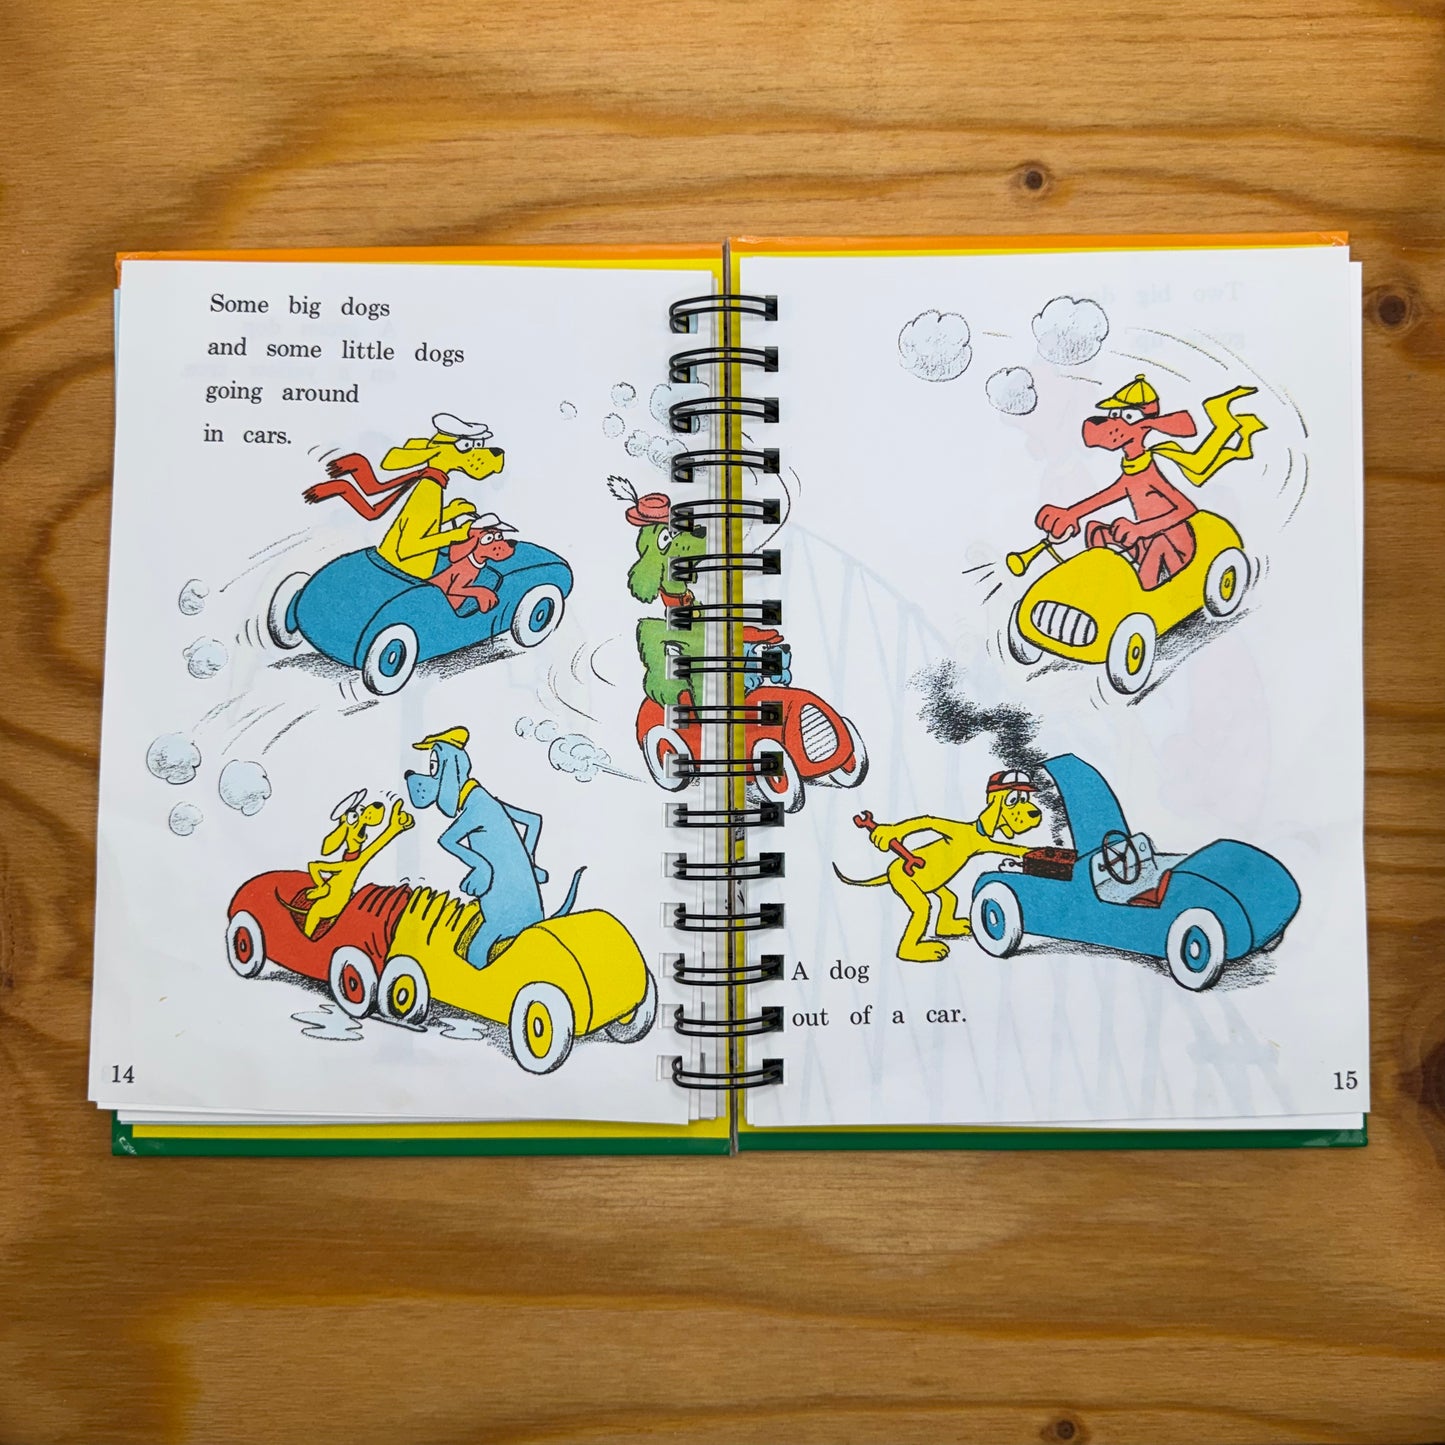 Some big dogs
and some little dogs
going around
in cars.
14
A dog
out of a car.
15